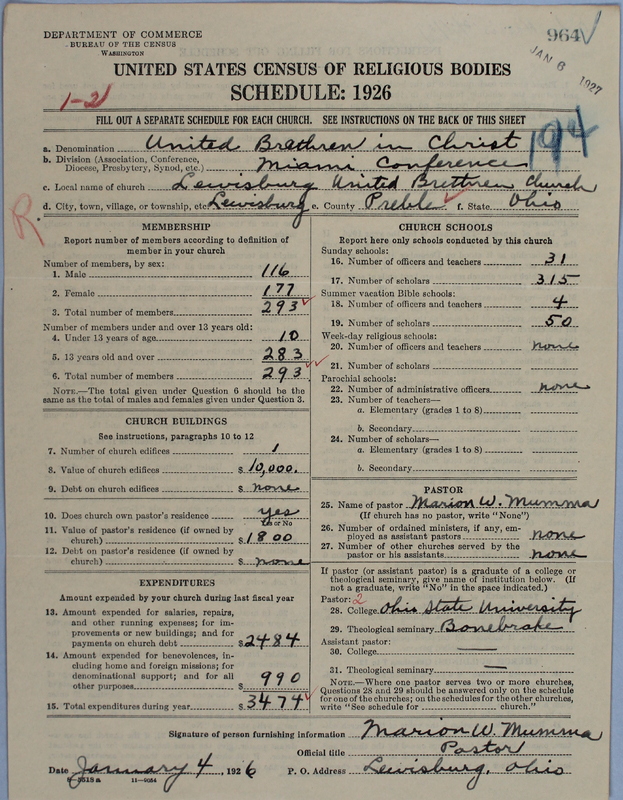 DEPARTMENT OF COMMERCE
BUREAU OF THE CENSUS
WASHINGTON
964
JAN 6 1927
UNITED STATES CENSUS OF RELIGIOUS BODIES
SCHEDULE: 1926
1-21
FILL OUT A SEPARATE SCHEDULE FOR EACH CHURCH. SEE INSTRUCTIONS ON THE BACK OF THIS SHEET
194
a. Denomination United Brethren in Christ
b. Division (Association, Conference, Diocese, Presbytery, Synod, etc.) Miami Conference
c. Local name of church Lewisburg United Brethren Church
d. City, town, village, or township, etc. Lewisburg e. County Preble f. State Ohio
R
MEMBERSHIP
Report number of members according to definition of
member in your church
Number of members, by sex:
1. Male 116
2. Female 177
3. Total number of members 293
Number of members under and over 13 years old:
4. Under 13 years of age 10
5. 13 years old and over 283
6. Total number of members 293
NOTE.—The total given under Question 6 should be
same as the total of males and females given under Question 3.
CHURCH BUILDINGS
See instructions, paragraphs 10 to 12
7. Number of church edifices 1
8. Value of church edifices $ 10,000.
9. Debt on church edifices $ none
10. Does church own pastor's residence yes
Yes or No
11. Value of pastor's residence (if owned by
church) $ 1800
12. Debt on pastor's residence (if owned by
church) $ none
EXPENDITURES
Amount expended by your church during last fiscal year
13. Amount expended for salaries, repairs,
and other running expenses; for im-
provements or new buildings; and for
payments on church debt $ 2484
14. Amount expended for benevolences, in-
cluding home and foreign missions; for
denominational support; and for all
other purposes $ 990
15. Total expenditures during year $ 3474
CHURCH SCHOOLS
Report here only schools conducted by this church
Sunday schools:
16. Number of officers and teachers 31
17. Number of scholars 315
Summer vacation Bible schools:
18. Number of officers and teachers 4
19. Number of scholars 50
Week-day religious schools:
20. Number of officers and teachers none
21. Number of scholars
Parochial schools:
22. Number of administrative officers none
23. Number of teachers—
a. Elementary (grades 1 to 8)
b. Secondary
24. Number of scholars—
a. Elementary (grades 1 to 8)
b. Secondary
PASTOR
25. Name of pastor Marion W. Mumma
(If church has no pastor, write "None")
26. Number of ordained ministers, if any, em-
ployed as assistant pastors none
27. Number of other churches served by the
pastor or his assistants none
If pastor (or assistant pastor) is a graduate of a college or
theological seminary, give name of institution below. (If
not a graduate, write "No" in the space indicated.)
Pastor: 2
28. College Ohio State University
29. Theological seminary Bonebrake
Assistant pastor:
30. College —
31. Theological seminary —
NOTE.—Where one pastor serves two or more churches,
Questions 28 and 29 should be answered only on the schedule
for one of the churches; on the schedules for the other churches,
write "See schedule for church."
Signature of person furnishing information Marion W. Mumma
Official title Pastor
Date January 4, 1926 P. O. Address Lewisburg, Ohio
8—5518a 11—9064